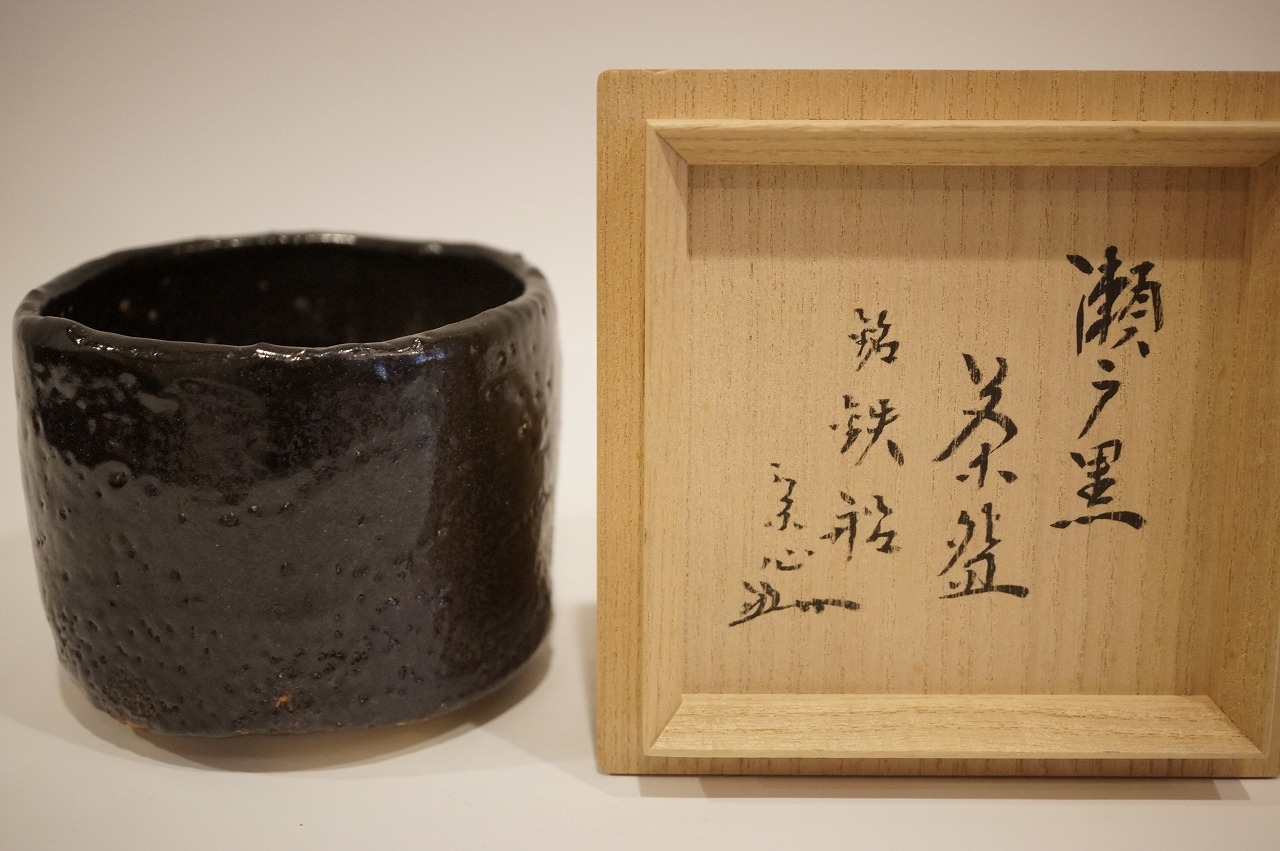 瀬戸黒
茶盌
銘 鉄船
宗心